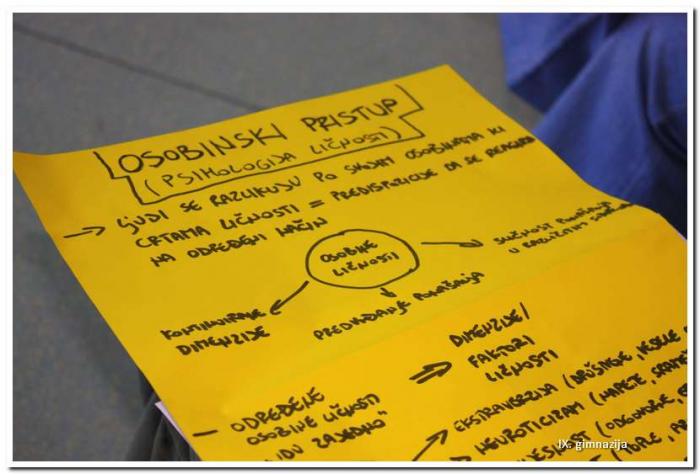 OSOBINSKI PRISTUP
(PSIHOLOGIJA LIČNOSTI)
→ LJUDI SE RAZLIKUJU PO SVOJIM OSOBINAMA ILI
CRTAMA LIČNOSTI = PREDISPOZICIJE DA SE REAGIRA
NA ODREĐENI NAČIN
OSOBINE
LIČNOSTI
SLIČNOST PONAŠANJA
U RAZLIČITIM
PREDVIĐANJE PONAŠANJA
KONTINUIRANE
DIMENZIJE
DIMENZIJE/
FAKTORI
LIČNOSTI
– ODREĐENE
OSOBINE LIČNOSTI
"IDU ZAJEDNO"
EKSTRAVERZIJA (DRUŠTVENE, VESELE,
NEUROTICIZAM (NAPETE,
(ODGOVORNE,
(TOPLE,
IX. gimnazija